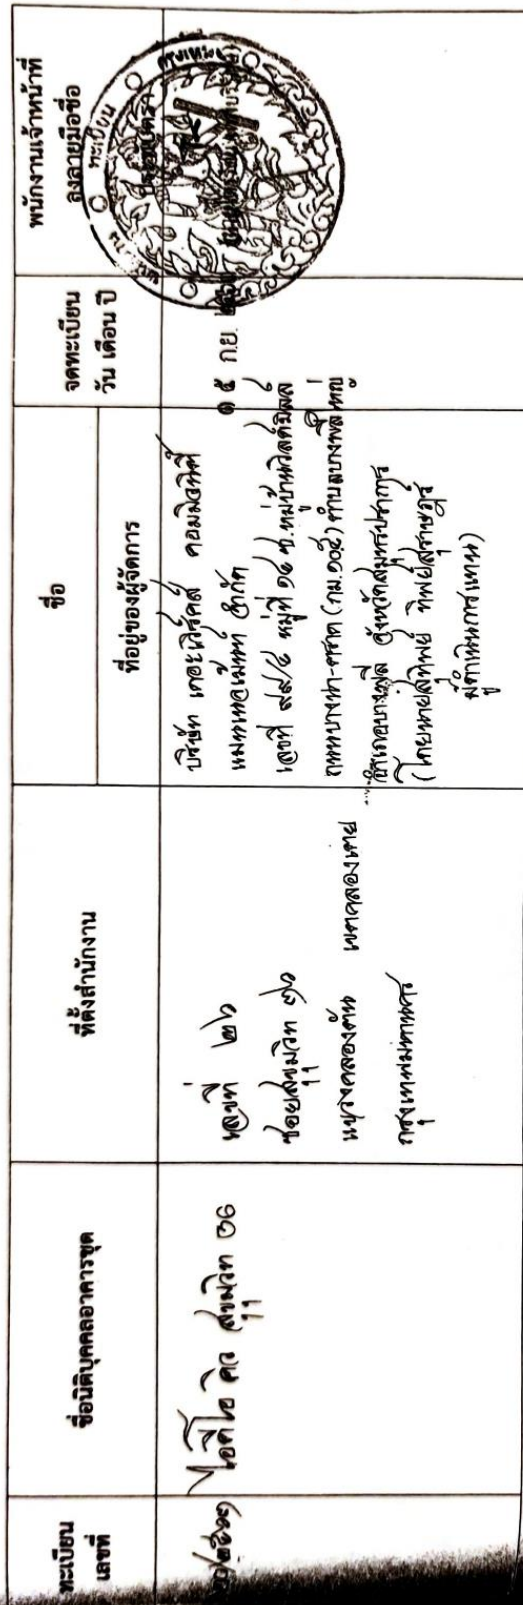 ทะเบียน
เลขที่
ชื่อนิติบุคคลอาคารชุด
ที่ตั้งสำนักงาน
ชื่อ
ที่อยู่ของผู้จัดการ
จดทะเบียน
วัน เดือน ปี
พนักงานเจ้าหน้าที่
ลงลายมือชื่อ
ไอดีโอ คิว สุขุมวิท 36
เลขที่ ๒๖
ซอยสุขุมวิท ๓๖
แขวงคลองตัน เขตคลองเตย
กรุงเทพมหานคร
บริษัท เดอะเวิร์คส์ คอมมิวนิตี้
แมนเนจเม้นท์ จำกัด
เลขที่ ๙๙/๔ หมู่ที่ ๑๔ ซ.หมู่บ้านวินด์มิลล์
ถนนบางนา-ตราด (กม.๑๐.๕) ตำบลบางพลีใหญ่
อำเภอบางพลี จังหวัดสมุทรปราการ
(โดยนายสุทิพย์ ทิพย์สุราษฎร์
ผู้ดำเนินการแทน)
๑๕ ก.ย.
ทะเบียน